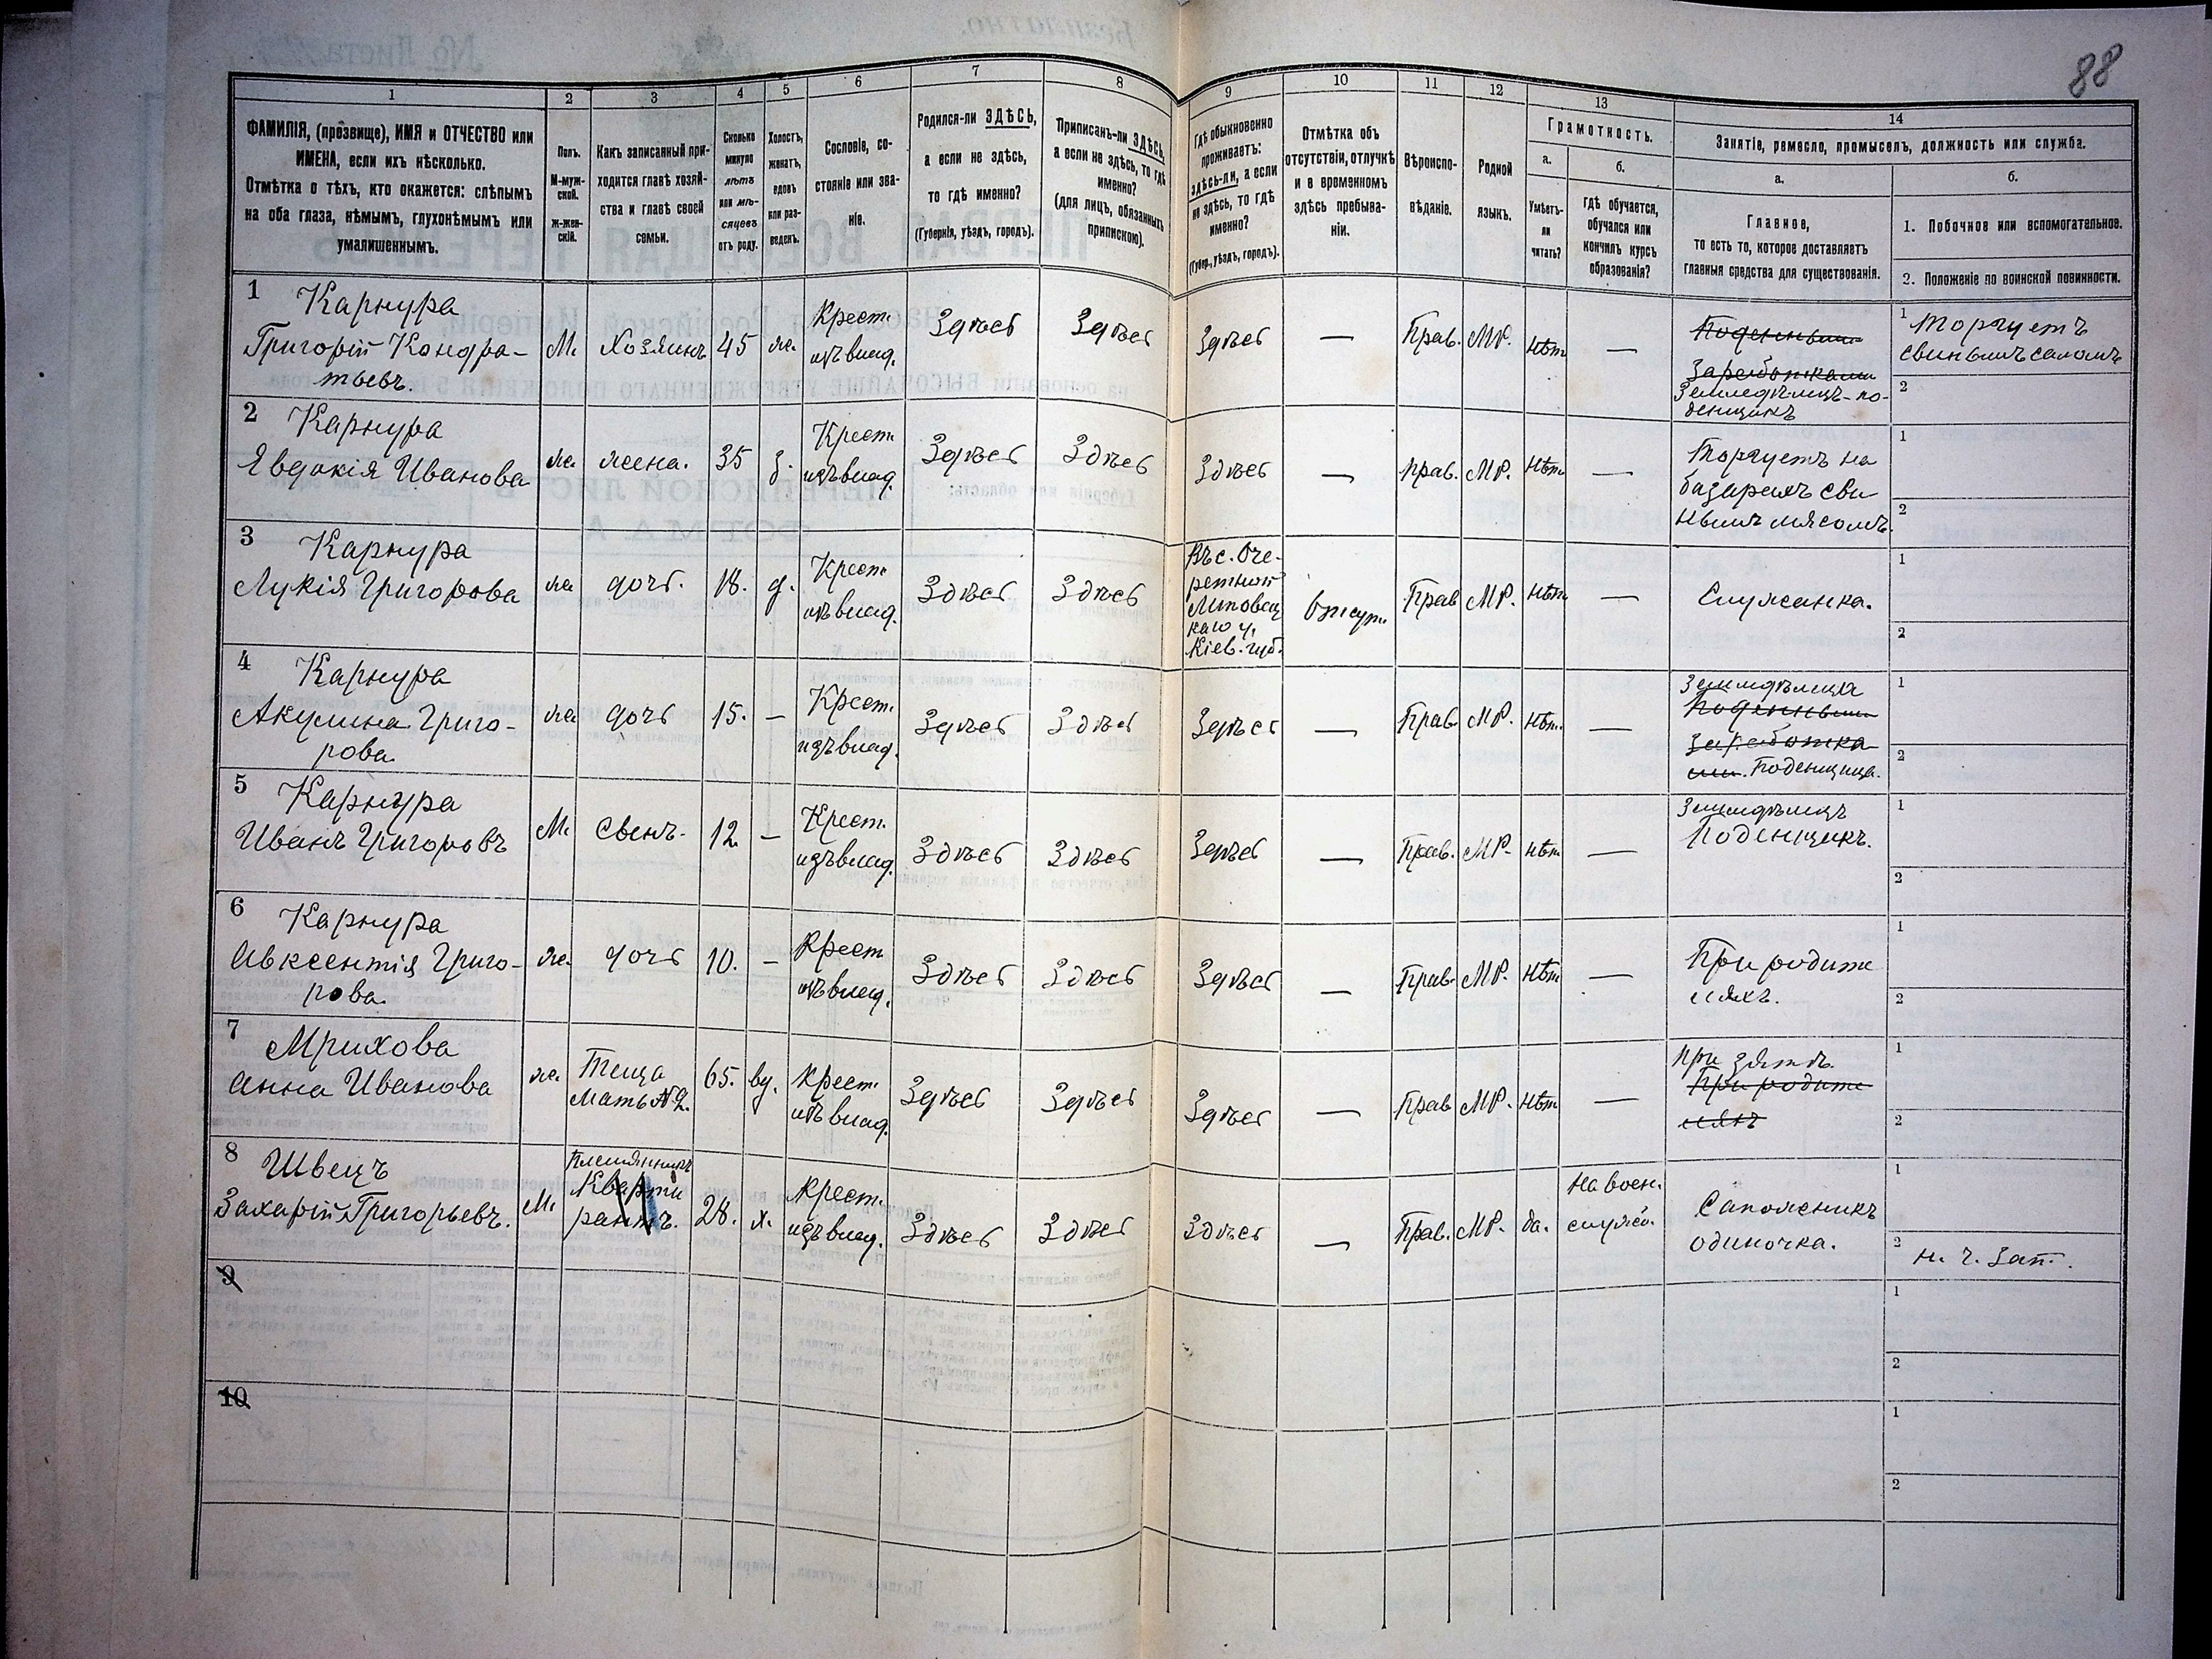 88
1
2
3
4
5
6
7
8
9
10
11
12
13
14
ФАМИЛІЯ, (прозвище), ИМЯ и ОТЧЕСТВО или
ИМЕНА, если ихъ нѣсколько.
Отмѣтка о тѣхъ, кто окажется: слѣпымъ
на оба глаза, нѣмымъ, глухонѣмымъ или
умалишеннымъ.
Полъ.
М-муж-
ской.
ж-жен-
скій.
Какъ записанный при-
ходится главѣ хозяй-
ства и главѣ своей
семьи.
Сколько
минуло
лѣтъ
или мѣ-
сяцевъ
отъ роду.
Холостъ,
женатъ,
вдовъ
или раз-
веденъ.
Сословіе, со-
стояніе или зва-
ніе.
Родился-ли ЗДѢСЬ,
а если не здѣсь,
то гдѣ именно?
(Губернія, уѣздъ, городъ).
Приписанъ-ли ЗДѢСЬ,
а если не здѣсь, то гдѣ
именно?
(для лицъ, обязанныхъ
припискою).
Гдѣ обыкновенно
проживаетъ:
здѣсь-ли, а если
не здѣсь, то гдѣ
именно?
(Губер., уѣздъ, городъ).
Отмѣтка объ
отсутствіи, отлучкѣ
и о временномъ
здѣсь пребыва-
ніи.
Вѣроиспо-
вѣданіе.
Родной
языкъ.
Грамотность.
а.
б.
Умѣетъ-
ли
читать?
гдѣ обучается,
обучался или
кончилъ курсъ
образованія?
Занятіе, ремесло, промыселъ, должность или служба.
а.
б.
Главное,
то есть то, которое доставляетъ
главныя средства для существованія.
1. Побочное или вспомогательное.
2. Положеніе по воинской повинности.
1
Карнура
Григорій Кондра-
тьевъ.
М.
Хозяинъ
45
ж.
Крест.
изъ влад.
Здѣсь
Здѣсь
Здѣсь
—
Прав.
МР.
нѣт
—
Поденными
Заработками
Земледѣлецъ-по-
денщикъ
1 Торгуетъ
свинымъ саломъ
2
2
Карнура
Евдокія Иванова
ж.
жена.
35
з.
Крест.
изъ влад.
Здѣсь
Здѣсь
Здѣсь
—
Прав.
МР.
нѣт
—
Торгуетъ на
базарахъ сви-
нымъ мясомъ.
1
2
3
Карнура
Лукія Григорова
ж.
дочь.
18.
д.
Крест
изъ влад.
Здѣсь
Здѣсь
Въ с. Оче-
ретной
Липовец
каго у.
Кіев. губ.
Отсут.
Прав
МР.
нѣт
—
Служанка.
1
2
4
Карнура
Акулина Григо-
рова
ж.
дочь
15.
—
Крест.
изъ влад.
Здѣсь
Здѣсь
Здѣсь
—
Прав.
МР.
нѣт.
—
Земледѣлица
Поденными
Заработка
ми. Поденщица.
1
2
5
Карнура
Иванъ Григоровъ
М.
Сынъ.
12.
—
Крест.
изъ влад.
Здѣсь
Здѣсь
Здѣсь
—
Прав.
МР.
нѣт
—
Земледѣлецъ
Поденщикъ.
1
2
6
Карнура
Авксентія Григо-
рова.
ж.
дочь
10.
—
Крест
изъ влад.
Здѣсь
Здѣсь
Здѣсь
—
Прав.
МР.
нѣт
—
При родите
ляхъ.
1
2
7
Мрихова
Анна Иванова
ж.
Теща
Мать № 2.
65.
вд.
Крест.
изъ влад.
Здѣсь
Здѣсь
Здѣсь
—
Прав
МР.
нѣт
—
При зятѣ.
При родите
ляхъ
1
2
8
Швецъ
Захарій Григорьевъ.
М.
Племянникъ
Кварти
рантъ.
28.
х.
Крест.
изъ влад.
Здѣсь
Здѣсь
Здѣсь
—
Прав.
МР.
да.
На воен.
службѣ.
Сапожникъ
одиночка.
1
2 н. ч. зап.
9
1
2
10
1
2